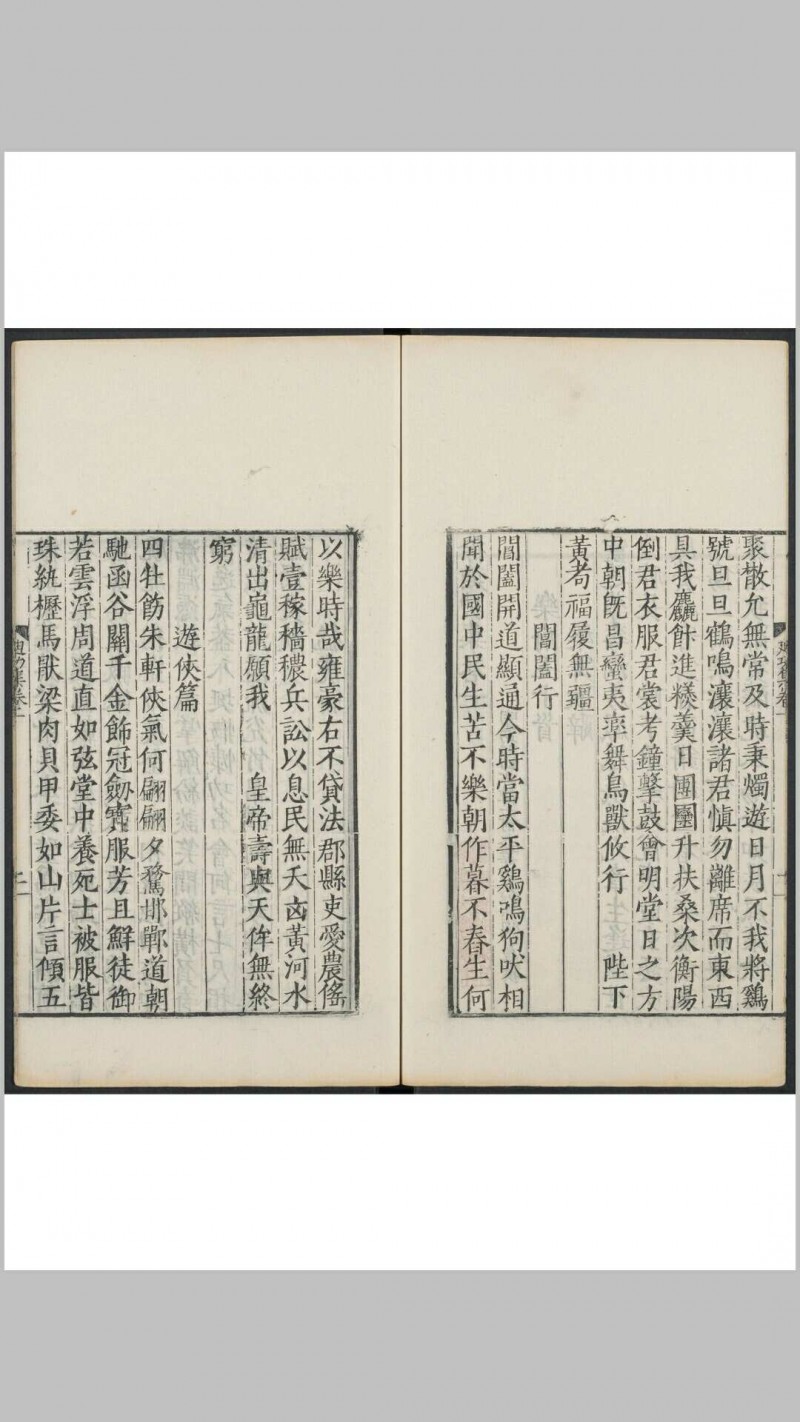 聚散允無常及時秉燭遊日月不我將鷄
號旦旦鶴鳴瀼瀼諸君愼勿離席而東西
具我麤餙進糉羹日團圞升扶桑次衡陽
倒君衣服君裳考鐘擊鼓會明堂日之方
中朝旣昌蠻夷率舞鳥獸攸行 陛下
黃耇福履無疆
閶闔行
閶闔開道顯通今時當太平鷄鳴狗吠相
聞於國中民生苦不樂朝作暮不舂生何
以樂時哉雍豪右不貸法郡縣吏愛農傜
賦壹稼穡穠兵訟以息民無夭凶黃河水
清出龜龍願我 皇帝壽與天侔無終
窮
遊俠篇
四牡飭朱軒俠氣何翩翩夕騖邯鄲道朝
馳函谷關千金飾冠劒寶服芳且鮮徒御
若雲浮周道直如弦堂中養死士被服皆
珠紈櫪馬猒梁肉貝甲委如山片言傾五